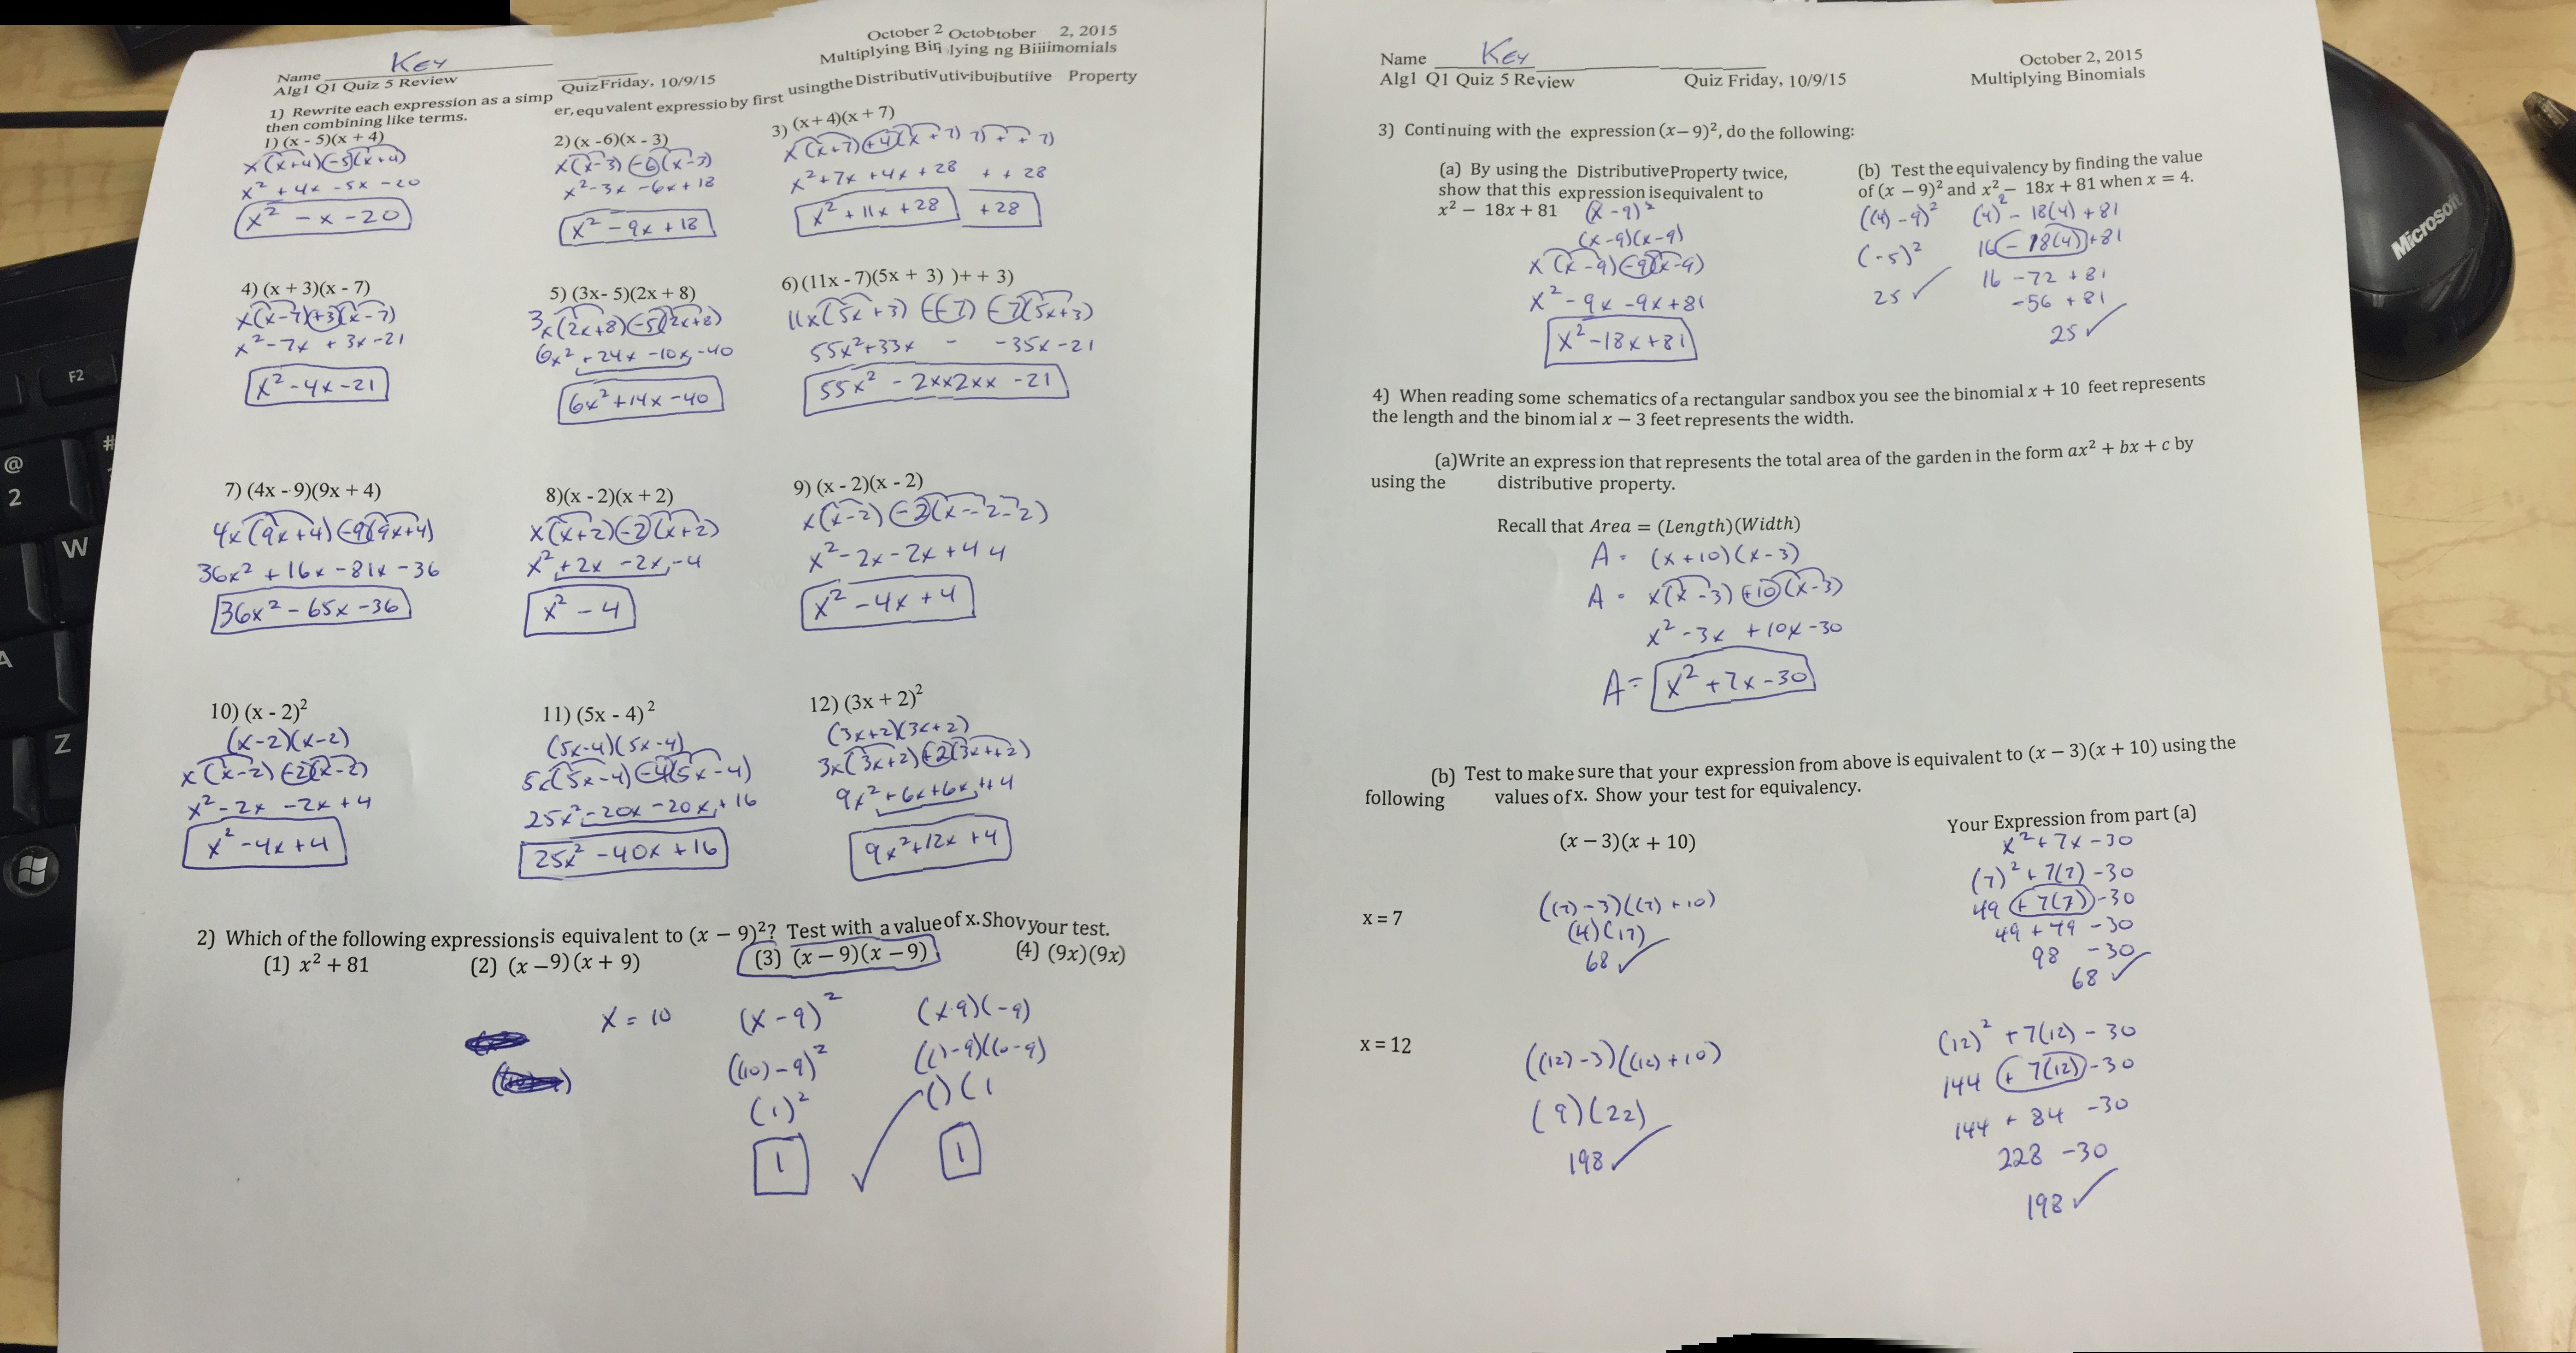 Name Key
Alg1 Q1 Quiz 5 Review
Quiz Friday, 10/9/15
October 2 Octobtober 2, 2015
Multiplying Bin lying ng Biiiimomials
1) Rewrite each expression as a simp er, equ valent expressio by first using the Distributiv utivibuibutiive Property
then combining like terms.
1) (x - 5)(x + 4)
x(x+4)-5(x+4)
x² + 4x - 5x - 20
x² - x - 20
2) (x -6)(x - 3)
x(x-3)-6(x-3)
x² - 3x - 6x + 18
x² - 9x + 18
3) (x + 4)(x + 7)
x(x+7)+4(x+7) 7) + + 7)
x² + 7x + 4x + 28 + + 28
x² + 11x + 28 +28
4) (x + 3)(x - 7)
x(x-7)+3(x-7)
x² - 7x + 3x - 21
x² - 4x - 21
5) (3x- 5)(2x + 8)
3x(2x+8)-5(2x+8)
6x² + 24x - 10x - 40
6x² + 14x - 40
6) (11x - 7)(5x + 3) )+ + 3)
11x(5x+3) (-7) -7(5x+3)
55x² + 33x - - 35x - 21
55x² - 2xx2xx - 21
7) (4x - 9)(9x + 4)
4x(9x+4)-9(9x+4)
36x² + 16x - 81x - 36
36x² - 65x - 36
8)(x - 2)(x + 2)
x(x+2)-2(x+2)
x² + 2x - 2x - 4
x² - 4
9) (x - 2)(x - 2)
x(x-2)-2(x-2-2)
x² - 2x - 2x + 4 4
x² - 4x + 4
10) (x - 2)²
(x-2)(x-2)
x(x-2)-2(x-2)
x² - 2x - 2x + 4
x² - 4x + 4
11) (5x - 4)²
(5x-4)(5x-4)
5x(5x-4)-4(5x-4)
25x² - 20x - 20x + 16
25x² - 40x + 16
12) (3x + 2)²
(3x+2)(3x+2)
3x(3x+2)+2(3x++2)
9x² + 6x + 6x ++ 4
9x² + 12x + 4
2) Which of the following expressions is equivalent to (x − 9)²? Test with a value of x. Shov your test.
(1) x² + 81 (2) (x −9)(x + 9) (3) (x − 9)(x − 9) (4) (9x)(9x)
x = 10
(x-9)²
((10)-9)²
(1)²
1
(x-9)(-9)
(()-9)(10-9)
()(1
1
Name Key
Alg1 Q1 Quiz 5 Review
Quiz Friday, 10/9/15
October 2, 2015
Multiplying Binomials
3) Continuing with the expression (x− 9)², do the following:
(a) By using the Distributive Property twice,
show that this expression is equivalent to
x² − 18x + 81
(x-9)²
(x-9)(x-9)
x(x-9)-9(x-9)
x² - 9x - 9x + 81
x² - 18x + 81
(b) Test the equivalency by finding the value
of (x − 9)² and x² − 18x + 81 when x = 4.
((4)-9)²
(-5)²
25 ✓
(4)² - 18(4) + 81
16 - 18(4) + 81
16 - 72 + 81
-56 + 81
25 ✓
4) When reading some schematics of a rectangular sandbox you see the binomial x + 10 feet represents
the length and the binom ial x − 3 feet represents the width.
(a)Write an expression that represents the total area of the garden in the form ax² + bx + c by
using the distributive property.
Recall that Area = (Length)(Width)
A = (x+10)(x-3)
A = x(x-3)+10(x-3)
x² - 3x + 10x - 30
A = x² + 7x - 30
(b) Test to make sure that your expression from above is equivalent to (x − 3)(x + 10) using the
following values of x. Show your test for equivalency.
(x − 3)(x + 10)
Your Expression from part (a)
x² + 7x - 30
x = 7
((7)-3)((7)+10)
(4)(17)
68 ✓
(7)² + 7(7) - 30
49 + 7(7) - 30
49 + 49 - 30
98 - 30
68 ✓
x = 12
((12)-3)((12)+10)
(9)(22)
198 ✓
(12)² + 7(12) - 30
144 + 7(12) - 30
144 + 84 - 30
228 - 30
198 ✓
Microsoft
F2
@
2
#
W
A
Z